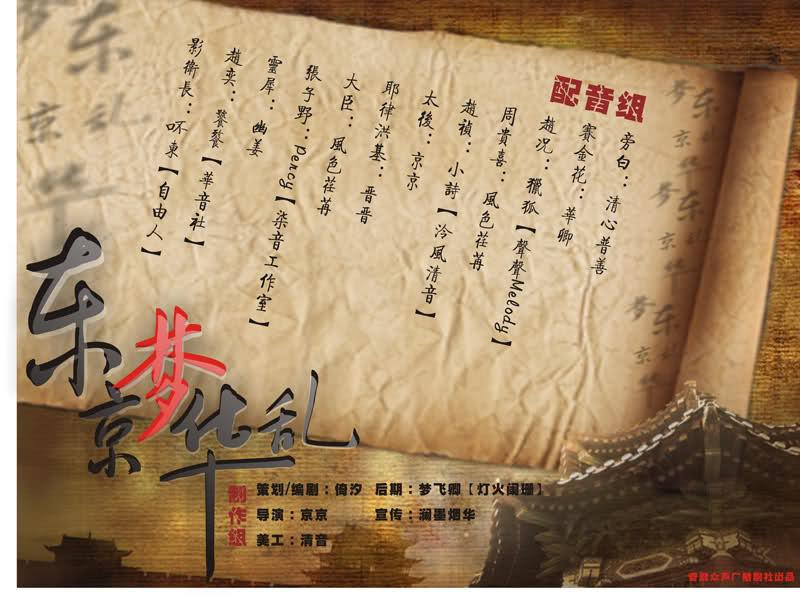 配音组
旁白：清心普善
賽金花：華卿
趙況：獵狐【聲聲Melody】
周貴喜：風色荏苒
趙禎：小詩【泠風清音】
太後：京京
耶律洪基：晋晋
大臣：風色荏苒
張子野：Percy【柒音工作室】
靈犀：幽姜
趙奕：饕餮【華音社】
影衛長：吥東【自由人】
东京梦华乱
制作组
策划/编剧：倚汐 后期：梦飞卿【灯火阑珊】
导演：京京 宣传：澜墨烟华
美工：清音